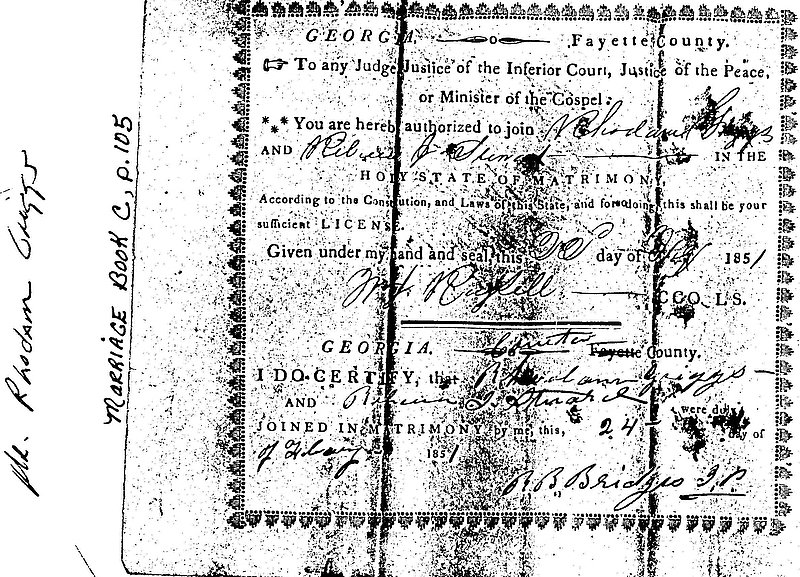 Mr. Rhodam Griggs
MARRIAGE BOOK C, P. 105
GEORGIA. Fayette County.
☞ To any Judge Justice of the Inferior Court, Justice of the Peace,
or Minister of the Gospel:
*** You are hereby authorized to join Rhodam Griggs
AND IN THE
HOLY STATE OF MATRIMONY
According to the Constitution, and Laws of this State, and for so doing, this shall be your
sufficient LICENSE.
Given under my hand and seal, this day of 1851
CCO. L.S.
GEORGIA. Fayette County.
I DO CERTIFY, that Rhodam Griggs
AND were duly
JOINED IN MATRIMONY by me, this, 24 day of
of 1851
R. B. Bridges J.P